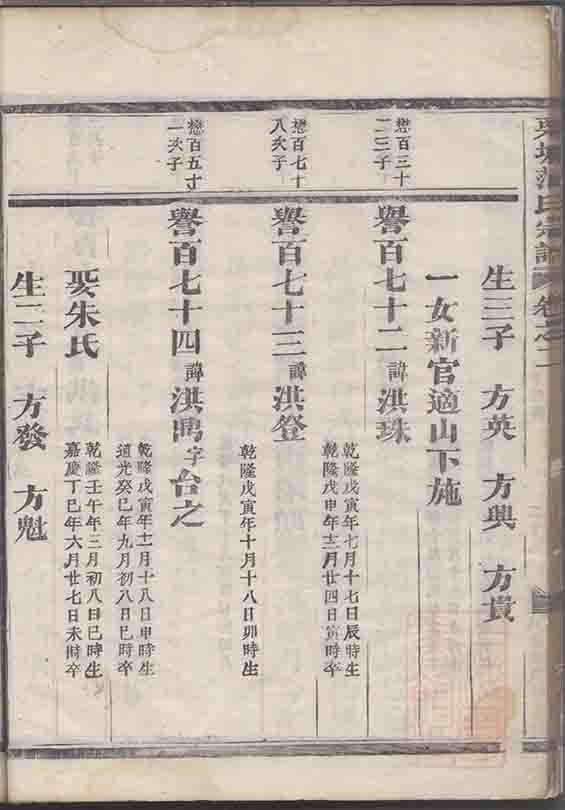 氏宗譜 卷之二
生三子 方英 方興 方貴
一女新官適山下施
懋百三十
二三子
譽百七十二 諱洪珠
乾隆戊寅年七月十七日辰時生
乾隆戊申年十二月廿四日寅時卒
懋百七十
八次子
譽百七十三 諱洪登
乾隆戊寅年十月十八日卯時生
懋百五十
一次子
譽百七十四 諱洪 字台之
乾隆戊寅年十二月十八日申時生
道光癸巳年九月初八日巳時卒
娶朱氏
乾隆壬午年三月初八日巳時生
嘉慶丁巳年六月廿七日未時卒
生二子 方發 方魁